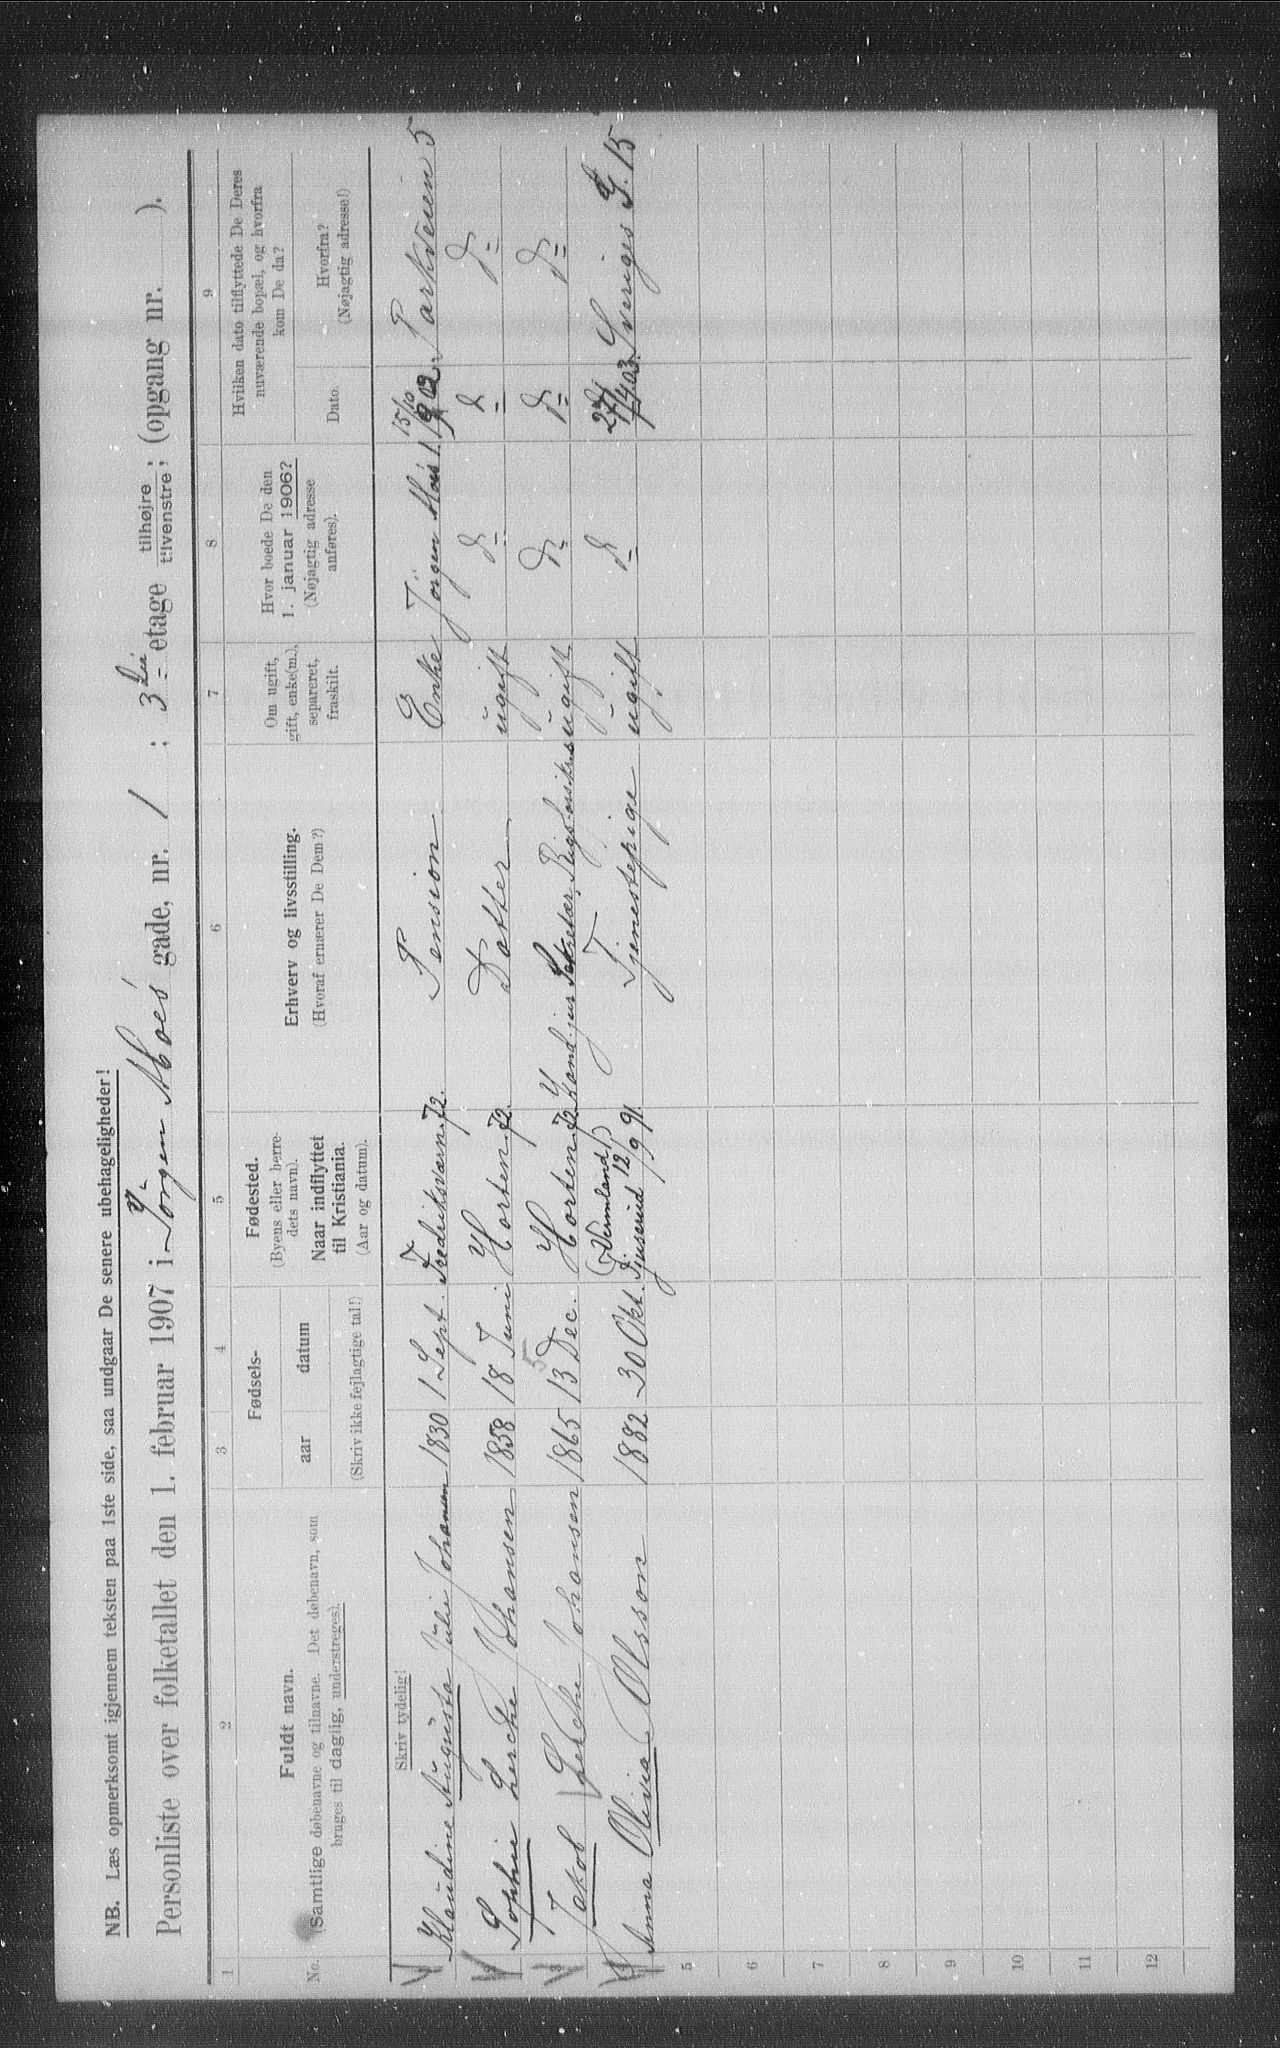 NB. Læs opmerksomt igjennem teksten paa 1ste side, saa undgaar De senere ubehageligheder!
Personliste over folketallet den 1. februar 1907 i Jørgen Moes gade, nr. 1 ; 3 die etage tilhøjre / tilvenstre; (opgang nr. ).
1 2 3 4 5 6 7 8 9
No.
Fuldt navn.
(Samtlige døbenavne og tilnavne. Det døbenavn, som
bruges til daglig, understreges).
Fødsels-
aar datum
(Skriv ikke fejlagtige tal!)
Fødested.
(Byens eller herre-
dets navn).
Naar indflyttet
til Kristiania.
(Aar og datum).
Erhverv og livsstilling.
(Hvoraf ernærer De Dem?)
Om ugift,
gift, enke(m.),
separeret,
fraskilt.
Hvor boede De den
1. januar 1906?
(Nøjagtig adresse
anføres).
Hvilken dato tilflyttede De Deres
nuværende bopæl, og hvorfra
kom De da?
Dato.
Hvorfra?
(Nøjagtig adresse!)
Skriv tydelig!
Klaudine Augusta Julie Johansen 1830 1 Sept. Fredriksværn 72. Pension Enke Jörgen Moes 1. 15/10 902. Parkveien 5
Sophie Lerche Johansen 1858 18 Juni Horten 72. Datter ugift d= d= d=
5
Jakob Lerche Johansen 1865 13 Dec. Horten 72. Kand. jur. Sekretær, ugift d= d= d=
(Vermland)
4 Anna Olivia Olsson 1882 30 Okt. 12/9 91. Tjenestepige ugift d= 03. Sveriges G. 15
5
6
7
8
9
10
11
12